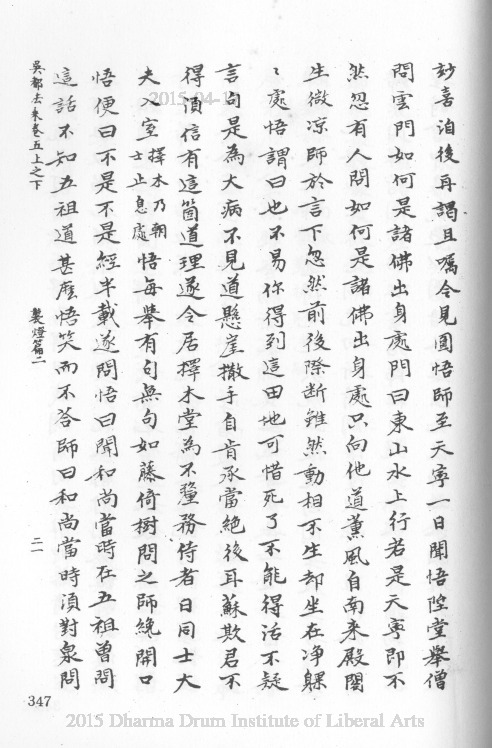 妙喜洎後再謁且囑令見圓悟師至天寧一日聞悟陞堂舉僧
問雲門如何是諸佛出身處門曰東山水上行若是天寧即不
然忽有人問如何是諸佛出身處只向他道薰風自南來殿閣
生微凉師於言下忽然前後際断雖然動相不生却坐在净躶
〻處悟謂曰也不易你得到這田地可惜死了不能得活不疑
言句是為大病不見道懸崖撒手自肯承當絶後再甦欺君不
得須信有這箇道理遂令居擇木堂為不釐務侍者日同士大
夫入室擇木乃朝士止息處悟每舉有句無句如藤倚樹問之師纔開口
悟便曰不是不是經半載遂問悟曰聞和尚當時在五祖曾問
這話不知五祖道甚麽悟笑而不答師曰和尚當時須對衆問
吳都法乘卷五上之下
製燈篇二
二一
347
2015-04-1
2015 Dharma Drum Institute of Liberal Arts